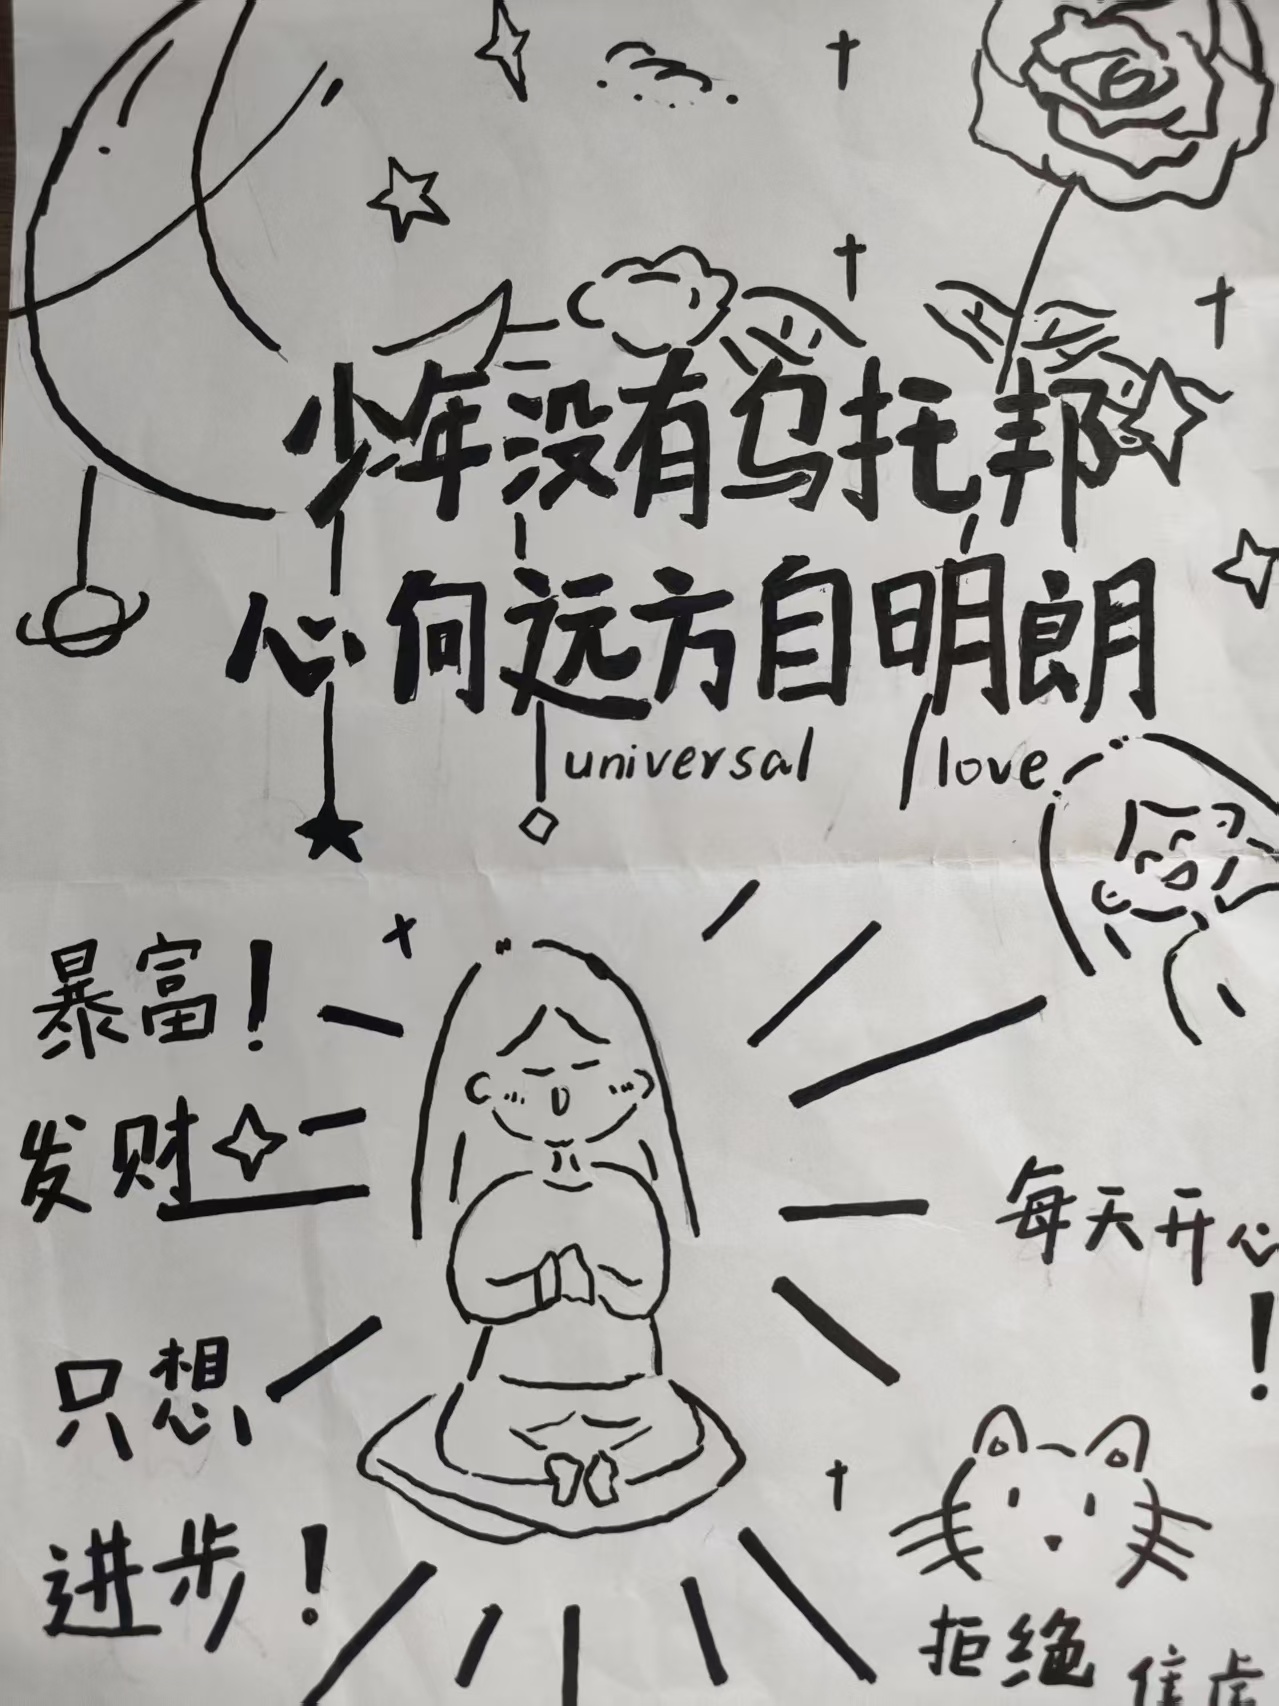 少年没有乌托邦
心向远方自明朗
universal love
暴富！
发财
每天开心！
只想
进步！
拒绝焦虑